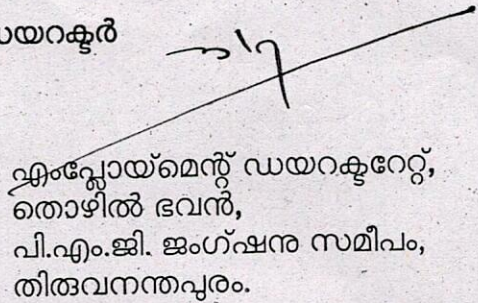 ഡയറക്ടർ
എംപ്ലോയ്മെന്റ് ഡയറക്ടറേറ്റ്,
തൊഴിൽ ഭവൻ,
പി.എം.ജി. ജംഗ്ഷനു സമീപം,
തിരുവനന്തപുരം.